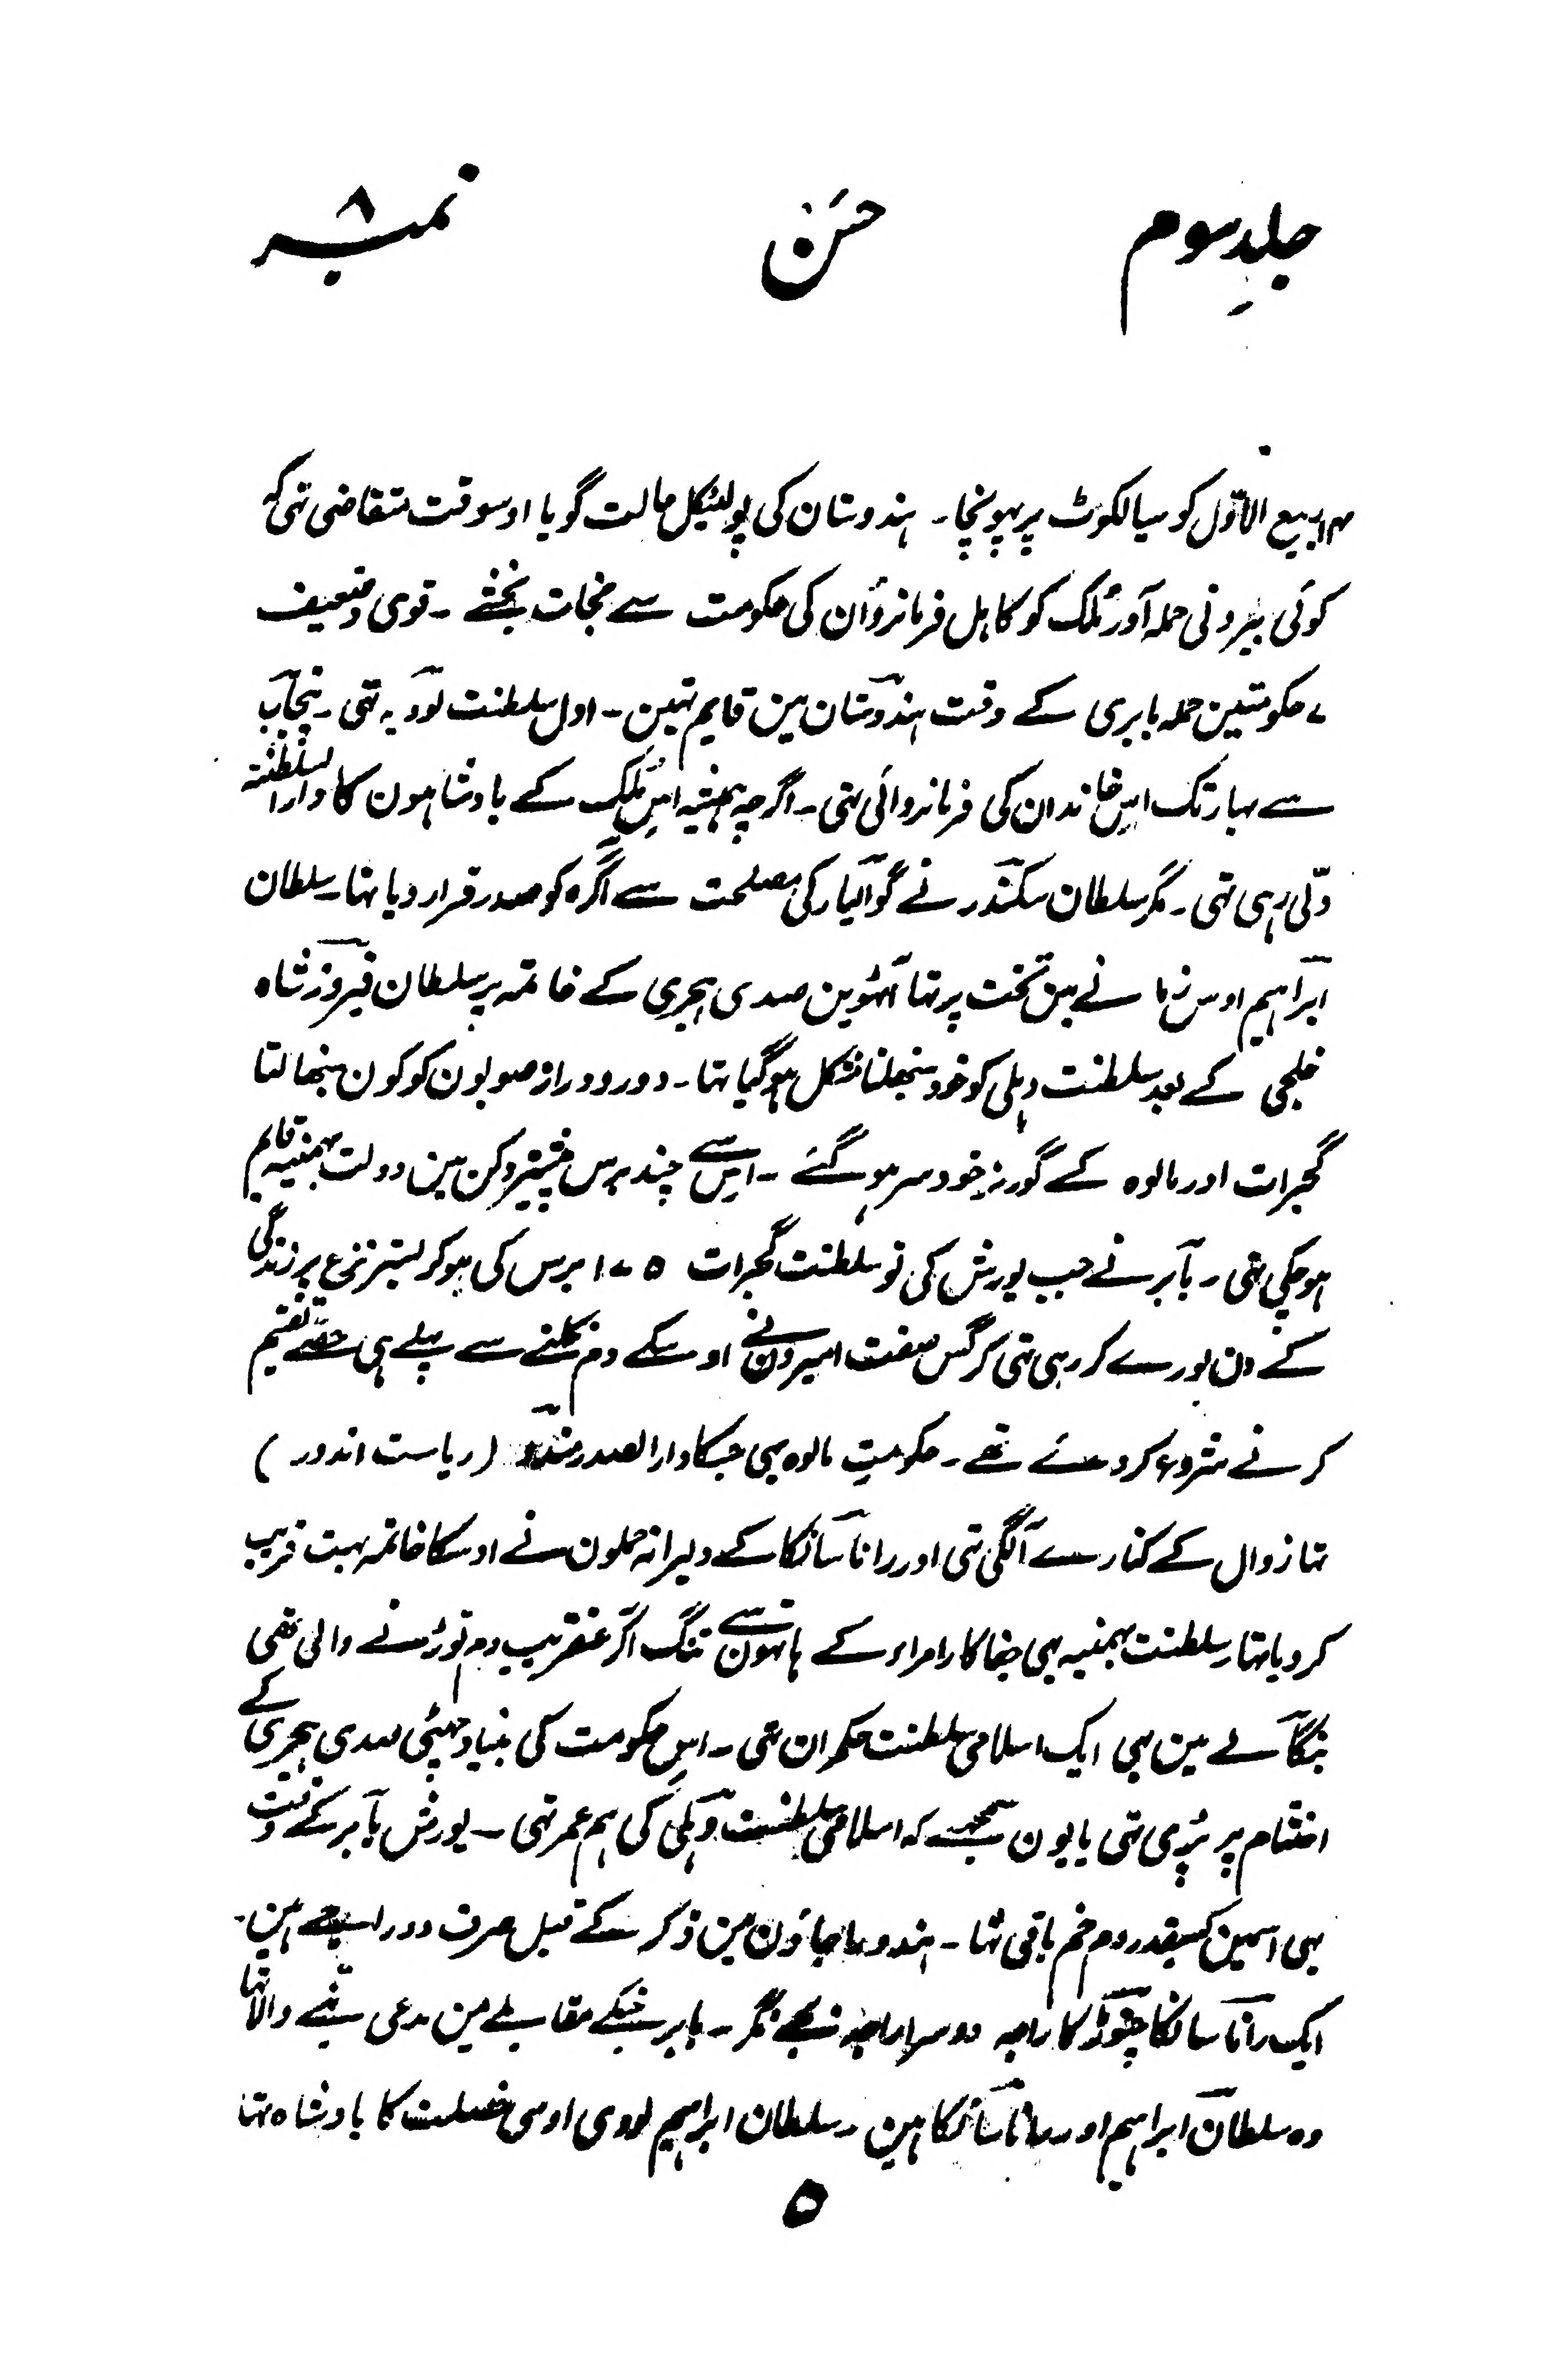 جلدِ سوم حسَن نمبر ۸
۱۴ ربیع الاوّل کو سیالکوٹ پر پہونچا۔ ہندوستان کی پولٹیکل حالت گویا اوسوقت متقاضی تہی کہ
کوئی بیرونی حملہ آور مُلک کو کاہل فرمانرواؤن کی حکومت سے نجات بخشے۔ قوی وضعیف
۷ حکومتین حملہ بابری کے وقت ہندوستان مین قایم تہین۔ اول سلطنت لودیہ تہی۔ پنجاب
سے بہار تک اسِ خاندان کی فرمانروائی تہی۔ اگرچہ ہمیشہ اسِ مُلک کے بادشاہون کا دارالسلطنتہ
دلّی رہی تہی۔ مگر سلطان سکندر نے گوالیار کی مصلحت سے آگرہ کو صدر قرار دیا تہا۔ سلطان
ابراہیم اوس زمانے مین تخت پر تہا آٹھوین صدی ہجری کے خاتمہ پر سلطان فیروز شاہ
خلجی کے بعد سلطنت دہلی کو خود سنبھلنا مشکل ہوگیا تہا۔ دور و دراز صوبون کو کون سنبھالتا
گجرات اور مالوہ کے گورنر خود سر ہوگئے۔ اسِ سے چند برس پیشتر دکن مین دولت بہمنیہ قایم
ہوچکی تہی۔ بابر نے جب یورش کی تو سلطنت گجرات ۱۷۵ برس کی ہوکر بستر نزع پر زندگی
کے دن پورے کر رہی تہی کرگس صفت امیرون نے اوسکے دم نکلنے سے پہلے ہی حصّے تقسیم
کرنے شروع کردئے تھے۔ حکومتِ مالوہ بہی جسکا دارالصدر مندو (ریاست اندور)
تہا زوال کے کنارے آلگی تہی اور رانا سانکا کے دلیرانہ حملون نے اوسکا خاتمہ بہت قریب
کردیا تہا۔ سلطنت بہمنیہ بہی جفاکار امراء کے ہاتہون سے تنگ آکر عنقریب دم توڑنے والی تھی
بنگالے مین بہی ایک اسلامی سلطنت حکمران تھی۔ اسِ حکومت کی بنیاد چہٹی صدی ہجری کے
اختتام پر پڑی تہی یا یون سمجہے کہ اسلامی سلطنت دہلی کی ہم عمر تہی۔ یورش بابر کے وقت
بہی اسمین کسیقدر دم خم باقی تہا۔ ہندو راجاؤن مین ذکر کے قبل صرف دو راجے ہین۔
ایک رانا سانکا چتوڑ کا راجہ دوسرا راجہ بیجے نگر۔ بابر جنکے مقابلے مین مدعی بننے والا تہا
وہ سلطان ابراہیم اور رانا سانکا ہین۔ سلطان ابراہیم لودی اوسی خصلت کا بادشاہ تہا
۵